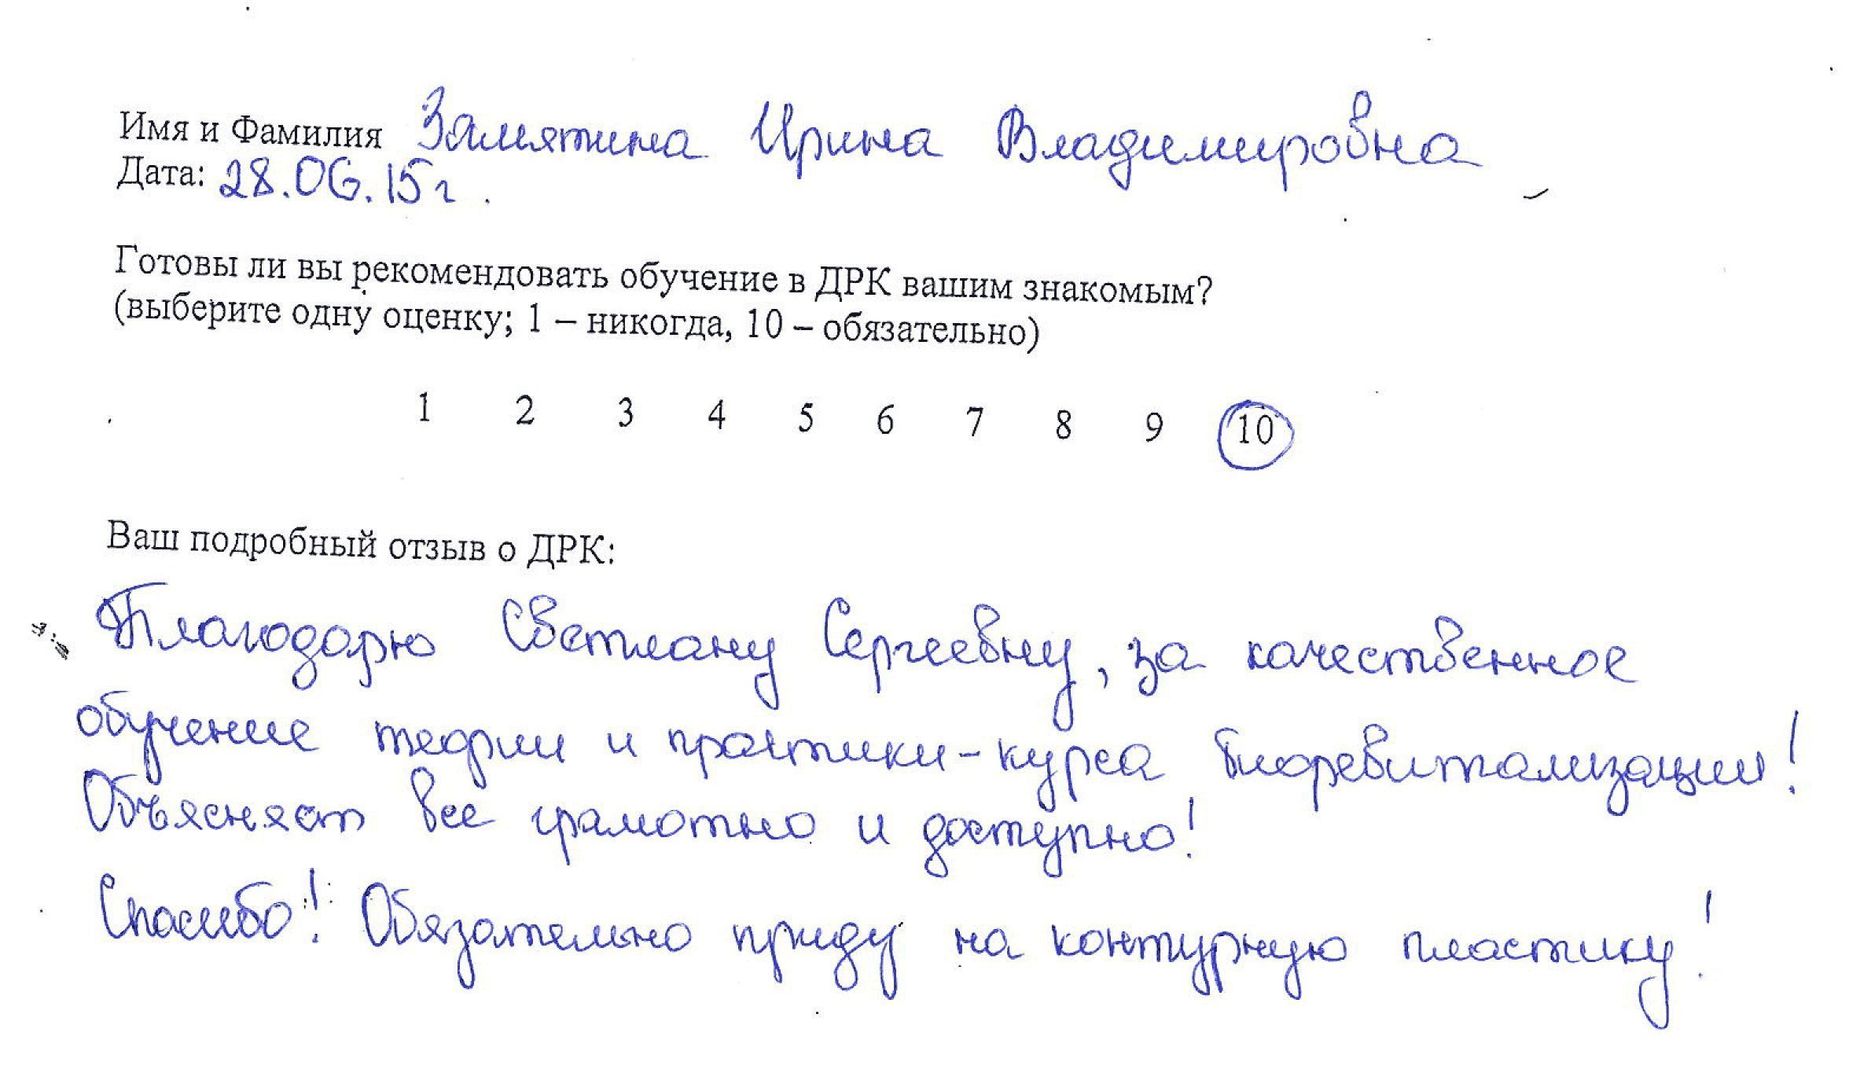 Имя и Фамилия Замятина Ирина Владимировна
Дата: 28.06.15г.
Готовы ли вы рекомендовать обучение в ДРК вашим знакомым?
(выберите одну оценку; 1 – никогда, 10 – обязательно)
1 2 3 4 5 6 7 8 9 10
Ваш подробный отзыв о ДРК:
Благодарю Светлану Сергеевну, за качественное
обучение теории и практики-курса биоревитализации!
Объясняет все грамотно и доступно!
Спасибо! Обязательно приду на контурную пластику!